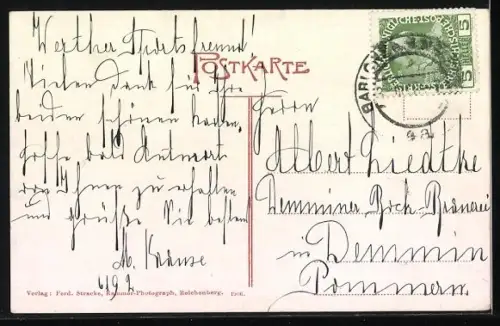 Werther Sportsfreund!
Vielen Dank für Ihre
beiden schönen Karten.
Hoffe bald Antwort
von Ihnen zu erhalten
und grüße Sie bestens
M. Krause
4192
POSTKARTE
Herrn
Albert Liedtke
Demminer Bock-Brauerei
in Demmin
Pommern
5 5
Verlag: Ferd. Stracke, Kammer-Photograph, Reichenberg. 1908.